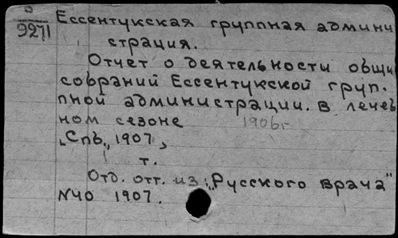 9271
Ессентукская группная админи
страция.
Отчет о деятельности общи
собраний Ессентукской груп-
пной администрации. в лечеб
ном сезоне 1906г
"Спб," 1907,
т.
Отд. отт. из: "Русского врача"
№40 1907.